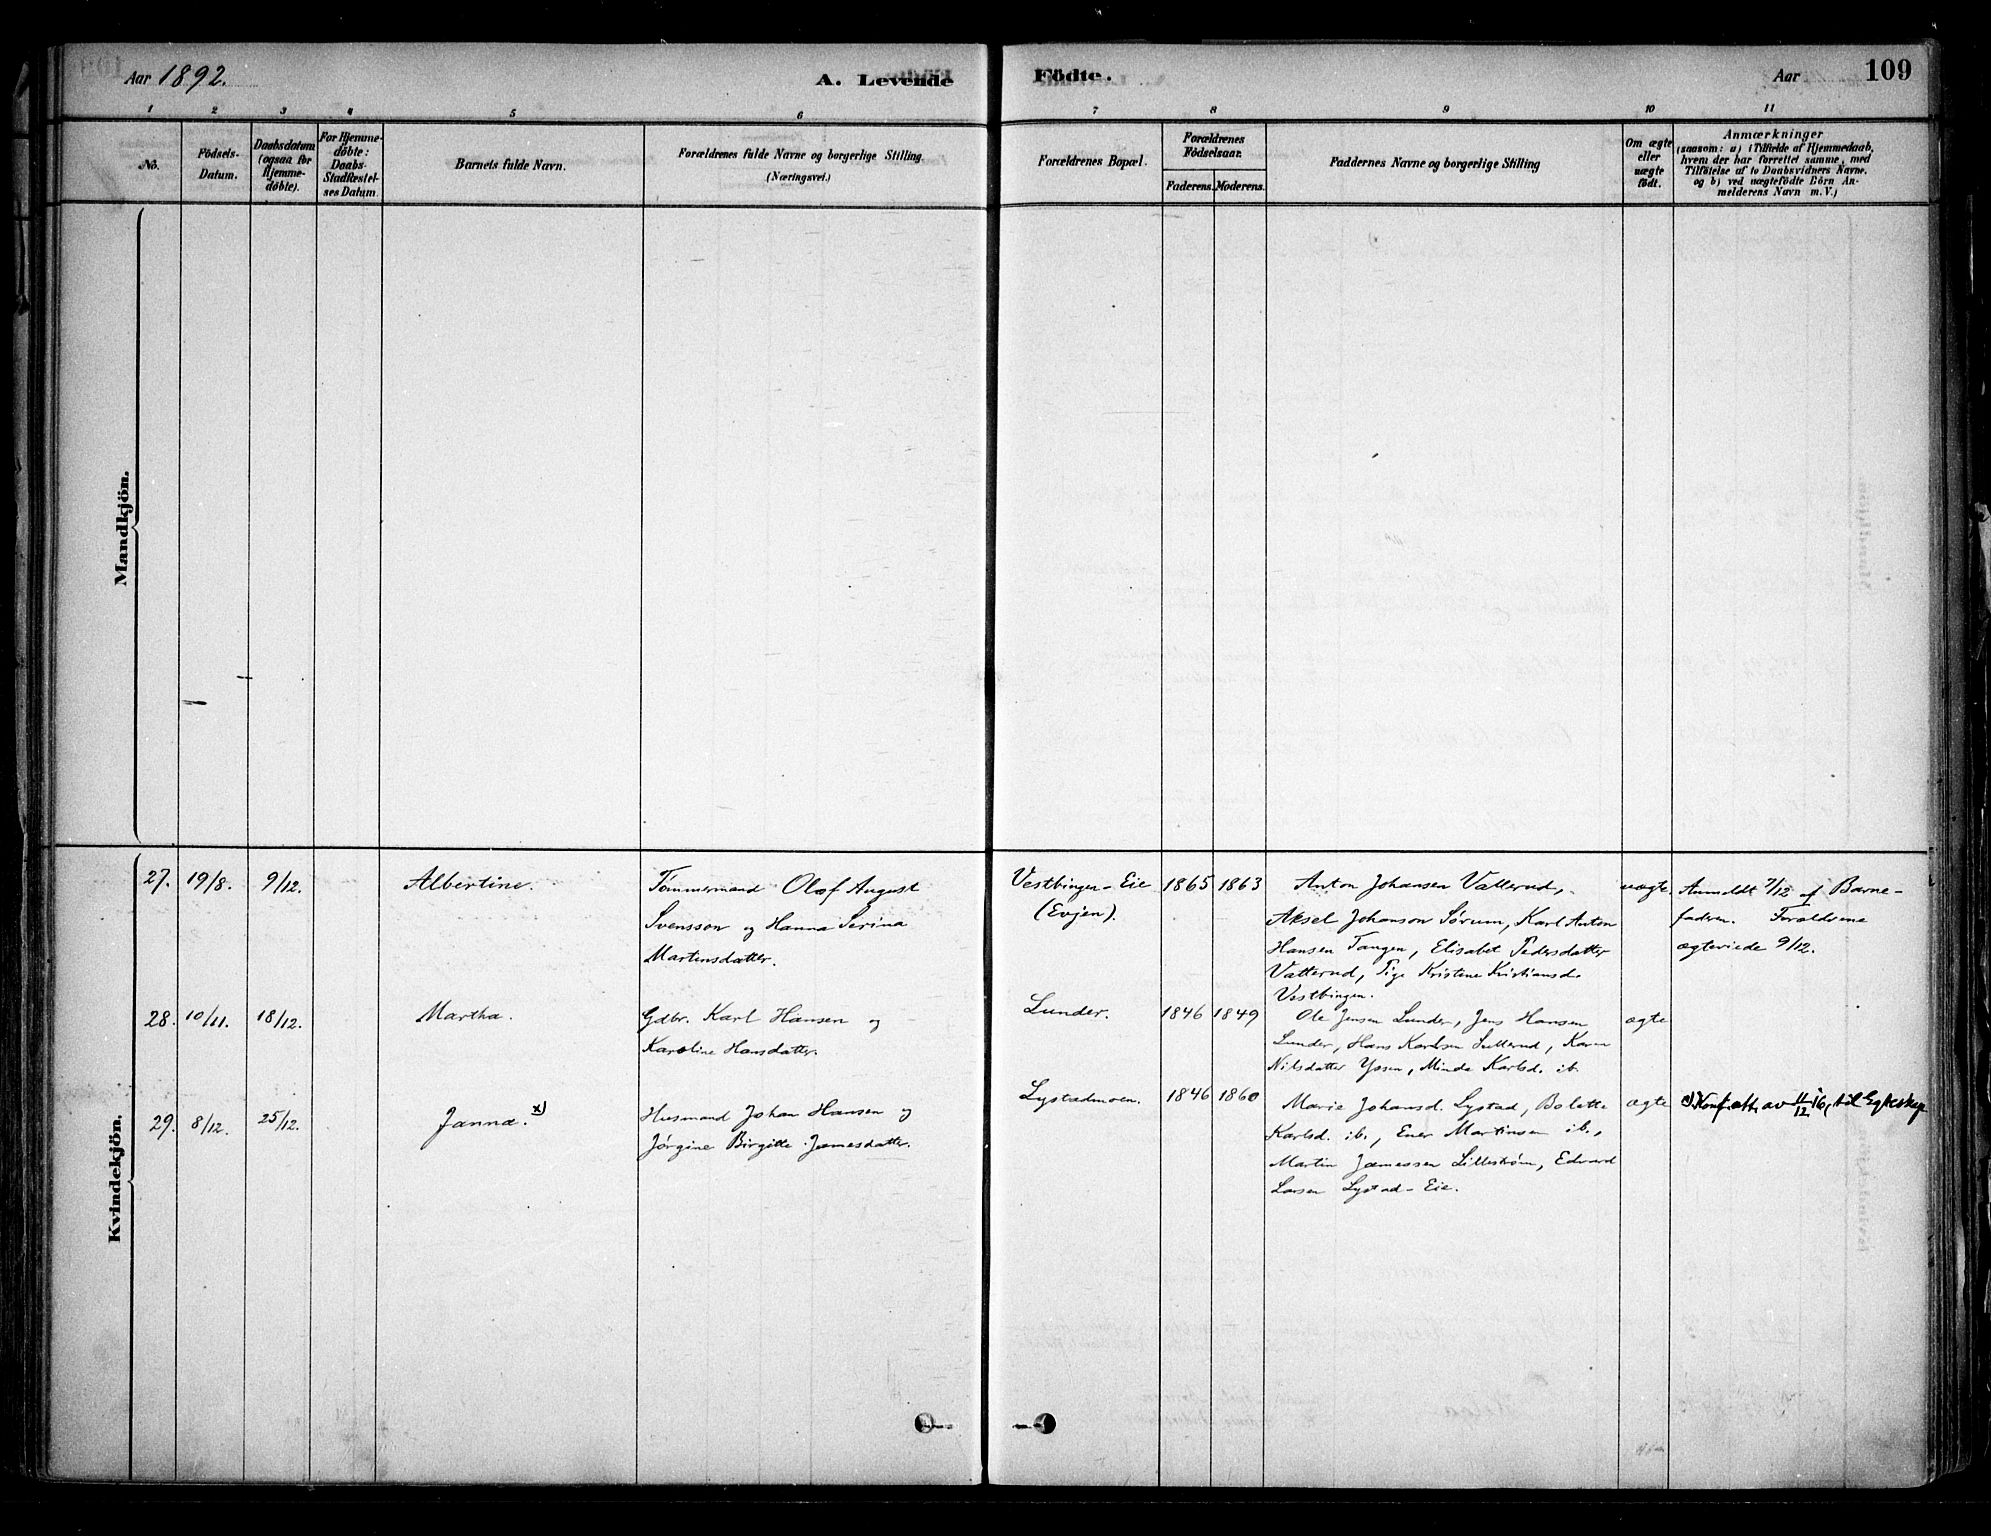 Aar 1892.
A. Levende
Födte.
Aar
109
1
2
3
4
5
6
7
8
9
10
11
No.
Födsels-
Datum.
Daabsdatum
(ogsaa for
Hjemme-
döbte).
For Hjemme-
döbte:
Daabs-
Stadfæstel-
ses Datum.
Barnets fulde Navn.
Forældrenes fulde Navne og borgerlige Stilling.
(Næringsvei.)
Forældrenes Bopæl.
Forældrenes
Födselsaar.
Faderens.
Moderens.
Faddernes Navne og borgerlige Stilling
Om ægte
eller
uægte
födt.
Anmærkninger
(saasom: a) i Tilfælde af Hjemmedaab,
hvem der har forrettet samme, med
Tilföielse af to Daabsvidners Navne.
og b) ved uægtefödte Börn An-
melderens Navn m. V.)
Mandkjön.
Kvindekjön.
27.
19/8.
9/12.
Albertine.
Tømmermand Olaf August
Svensson og Hanna Serina
Martinsdatter.
Vestbingen-Eie
(Evjen).
1865
1863
Anton Johansen Vatterud,
Aksel Johanson Sørum, Karl Anton
Hansen Tangen, Elisabet Pedersdatter
Vatterud, Pige Kristine Kristiansd.
Vestbingen.
uægte.
Anmeldt 7/12 af Barne-
faderen. Forældrene
ægteviede 9/12.
28.
10/11.
18/12.
Martha.
Gdbr. Karl Hansen og
Karoline Hansdatter.
Lunder.
1846
1849
Ole Jensen Lunder, Jens Hansen
Lunder, Hans Karlsen, Karen
Nilsdatter Yssen, Minda Karlsd. ib.
ægte
29.
8/12.
25/12.
Janna. x)
Husmand Johan Hansen og
Jørgine Birgitte Jamesdatter.
Lystadmoen.
1846
1860
Marie Johansd. Lystad, Bolette
Karlsd. ib., Ener Martinsen ib.,
Martin Jamessen Lillestrøm, Edvard
Larsen Lystad-Eie.
ægte
x) Konf.att. av 11/12 16, til Egteskap